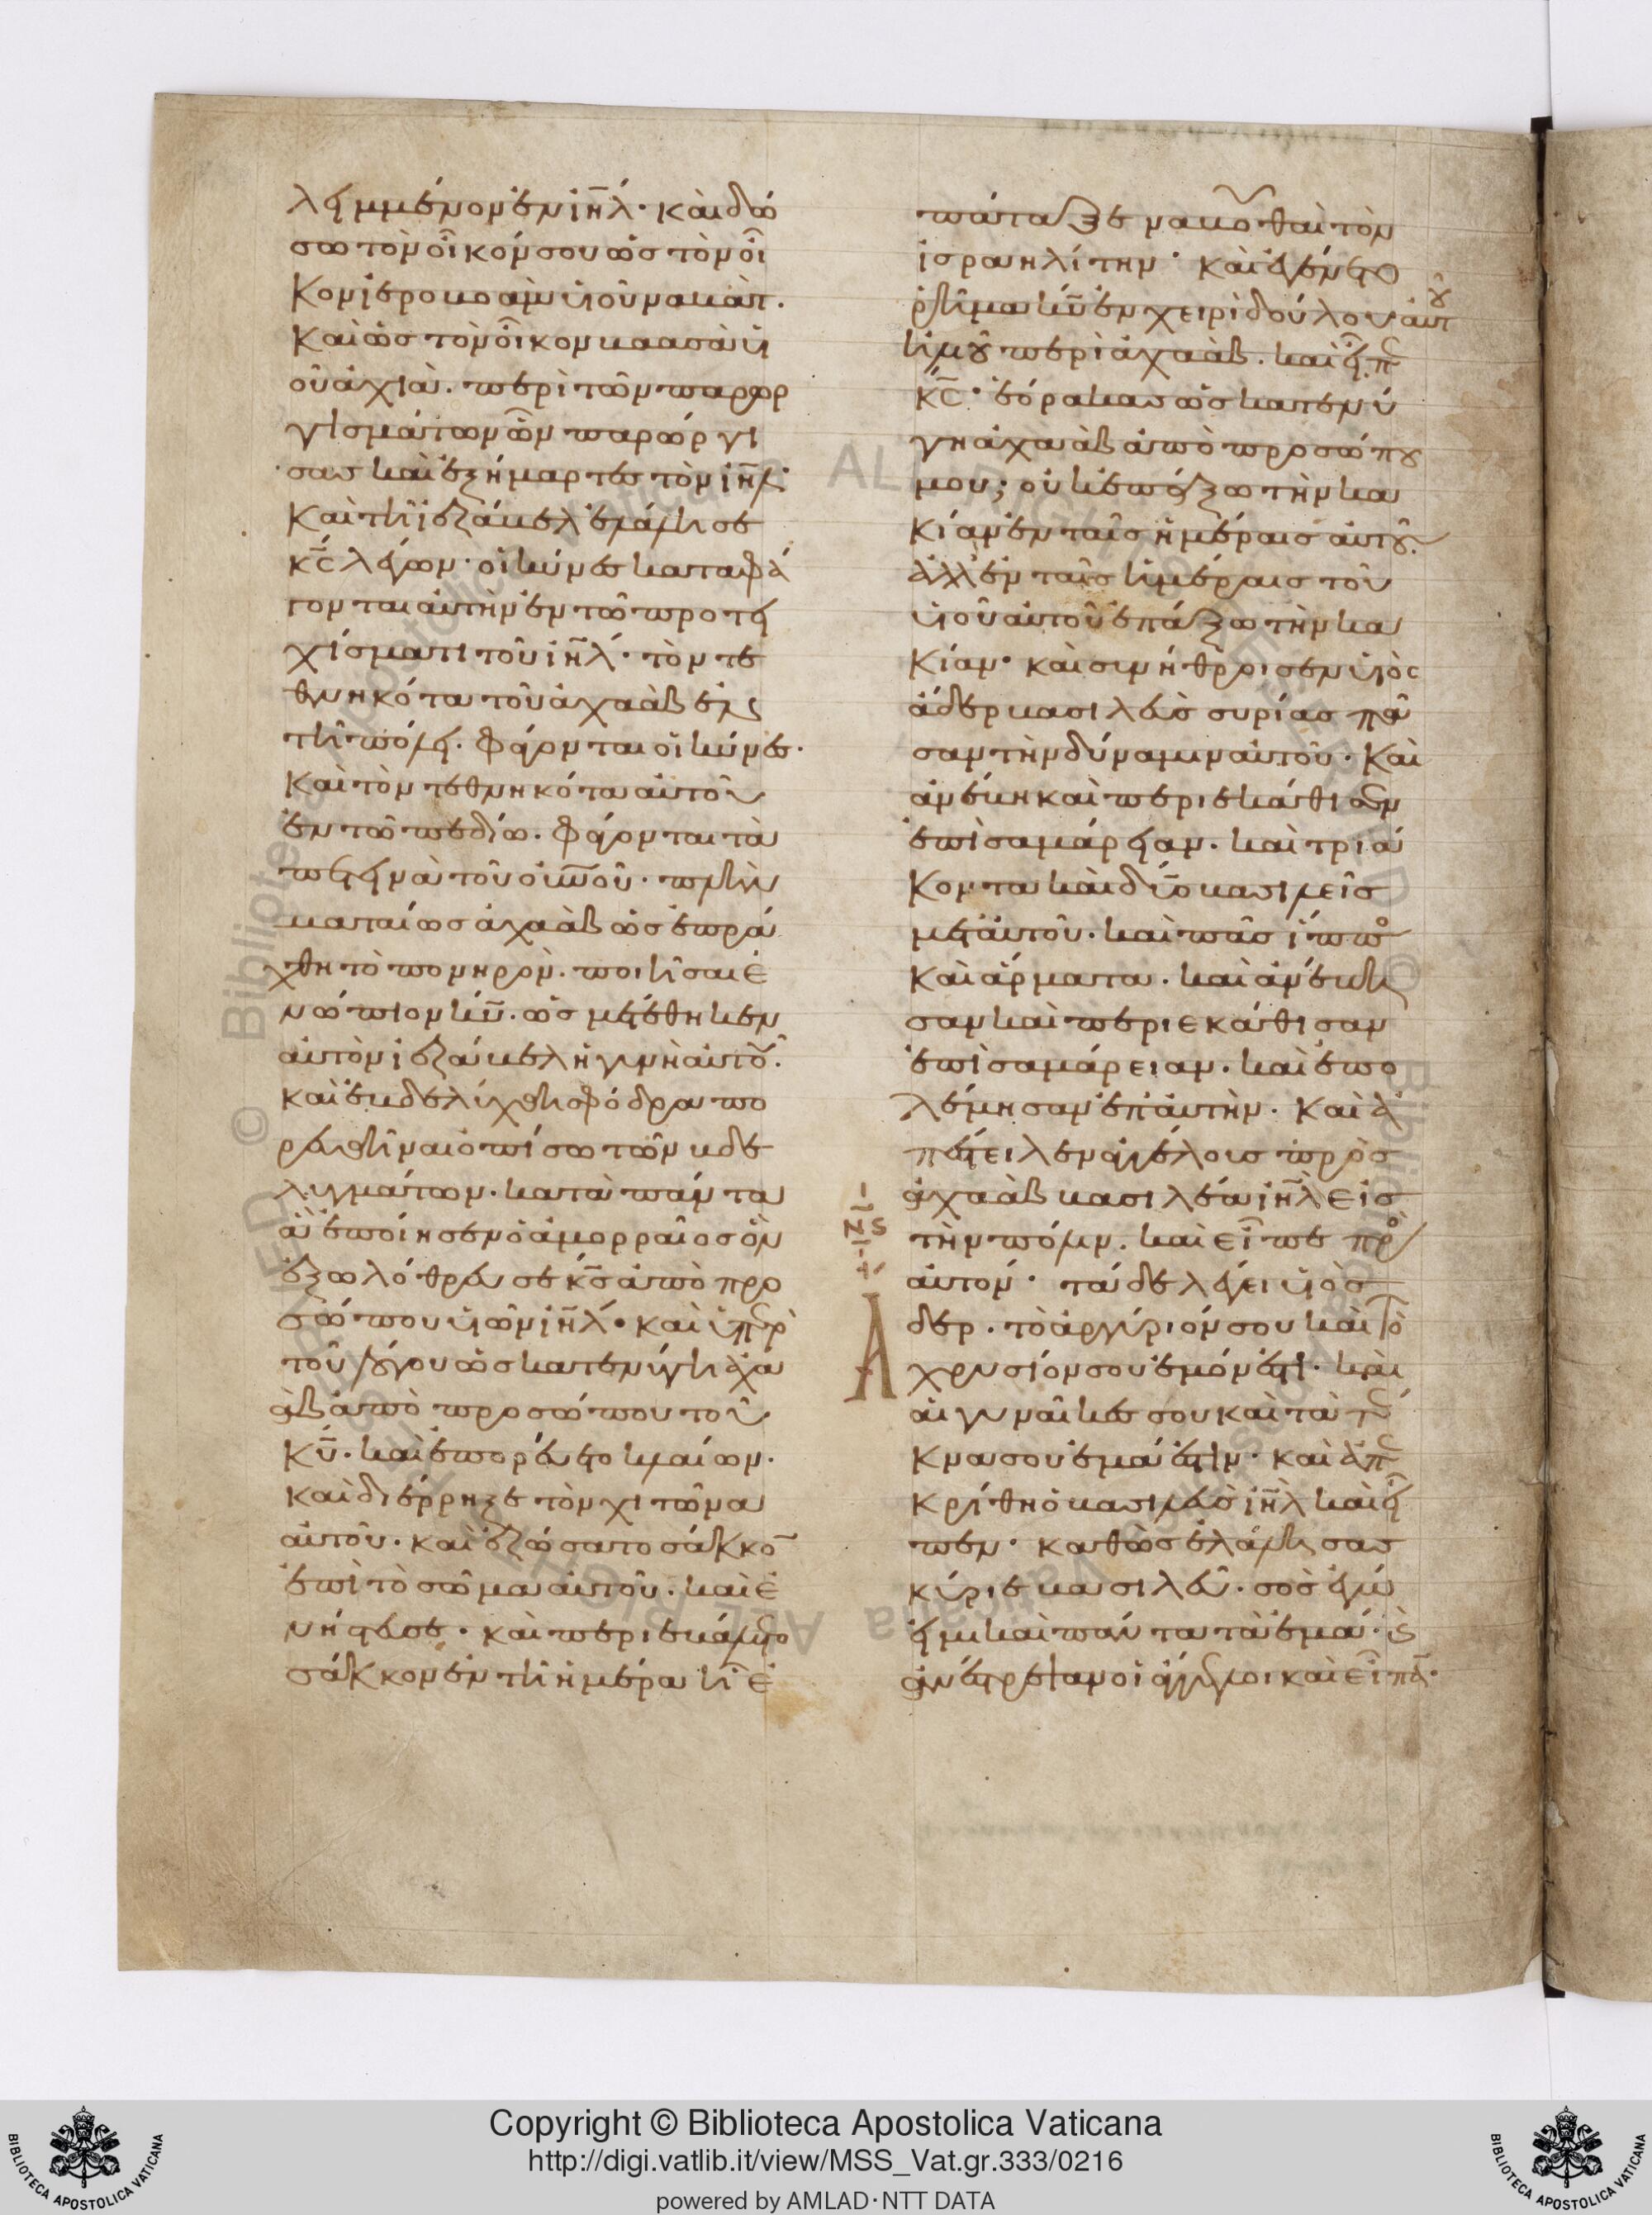 λειμμένον ἐν ἰη̄λ· καὶ δώ
σω τὸν οἶκόν σου ὡς τὸν οἶ
κον ἱεροβοὰμ υἱοῦ ναβάτ.
καὶ ὡς τὸν οἶκον βαασὰ υἱ
οῦ ἀχιά. περὶ τῶν παρορ
γισμάτων ὧν παρώργι
σας καὶ ἐξήμαρτες τὸν ἰη̄λ·
καὶ τῆ ἰεζάβελ ἐλάλησε
κ̄ς λέγων· οἱ κύνες καταφά
γονται αὐτὴν ἐν τῶ προτει
χίσματι τοῦ ἰη̄λ· τὸν τε
θνηκότα τοῦ ἀχαὰβ ἐν
τῆ πόλει. φάγονται οἱ κύνες·
καὶ τὸν τεθνηκότα αὐτοῦ
ἐν τῶ πεδίω. φάγονται τὰ
πετεινὰ τοῦ οὐν̄οῦ· πλὴν
ματαίως ἀχαὰβ ὡς ἐπρά
χθη τὸ πονηρὸν. ποιῆσαι ἐ
νώπιον κ̄υ. ὡς μετέθηκεν
αὐτὸν ἰεζάβελ ἡ γυνὴ αὐτοῦ.
καὶ ἐβδελύχθη σφόδρα πο
ρευθῆναι ὀπίσω τῶν βδε
λυγμάτων. κατὰ πάντα
ἃ ἐποίησεν ὁ ἀμορραῖος ὃν
ἐξωλόθρευσε κ̄ς ἀπὸ προ
σώπου υἱῶν ἰη̄λ· καὶ ὑπὲρ
τοῦ λόγου ὡς κατενύγη ἀχα
ὰβ ἀπὸ προσώπου τοῦ
κ̄υ. καὶ ἐπορεύετο κλαίων.
καὶ διέρρηξε τὸν χιτῶνα
αὐτοῦ. καὶ ἐζώσατο σάκκον
ἐπὶ τὸ σῶμα αὐτοῦ. καὶ ἐ
νήστευσε. καὶ περιεβάλετο
σάκκον ἐν τῆ ἡμέρα ἧ ἐ
πάταξε ναβουθαὶ τὸν
ἰσραηλίτην· καὶ ἐγένετο
ῥῆμα κ̄υ ἐν χειρὶ δούλου αὐτοῦ
ἠλιοῦ περὶ ἀχαάβ. καὶ εἶπε
κ̄ς· ἑόρακας ὡς κατενύ
γη ἀχαὰβ ἀπὸ προσώπου
μου; οὐκ ἐπάξω τὴν κα
κίαν ἐν ταῖς ἡμέραις αὐτοῦ.
ἀλλ' ἐν ταῖς ἡμέραις τοῦ
υἱοῦ αὐτοῦ ἐπάξω τὴν κα
κίαν· καὶ συνήθροισεν υἱὸς
ἄδερ βασιλεὺς συρίας πᾶ
σαν τὴν δύναμιν αὐτοῦ. καὶ
ἀνέβη καὶ περιεκάθισεν
ἐπὶ σαμάρειαν. καὶ τριά
κοντα καὶ δύο βασιλεῖς
μετ' αὐτοῦ. καὶ πᾶς ἵππος
καὶ ἅρματα. καὶ ἀνέβη
σαν καὶ περιεκάθισαν
ἐπὶ σαμάρειαν. καὶ ἐπο
λέμησαν ἐπ' αὐτὴν. καὶ ἀ
πέστειλεν ἀγγέλους πρὸς
ἀχαὰβ βασιλέα ἰη̄λ εἰς
τὴν πόλιν. καὶ εἶπε πρὸς
αὐτόν· τάδε λέγει υἱὸς
ἄδερ. τὸ ἀργύριόν σου καὶ τὸ
χρυσίον σου ἐμόν ἐστι. καὶ
αἱ γυναῖκες σου καὶ τὰ τέ
κνα σου ἐμά ἐστιν· καὶ ἀπε
κρίθη ὁ βασιλεὺς ἰη̄λ καὶ εἶ
πεν· καθὼς ἐλάλησας
κύριε βασιλεῦ. σὸς ἐγώ
εἰμι καὶ πάντα τὰ ἐμά· καὶ
ἀνέστρεψαν οἱ ἄγγελοι καὶ εἶπαν·
© Biblioteca Apostolica Vaticana
ALL RIGHTS RESERVED
Copyright © Biblioteca Apostolica Vaticana
http://digi.vatlib.it/view/MSS_Vat.gr.333/0216
powered by AMLAD·NTT DATA
BIBLIOTECA APOSTOLICA VATICANA
BIBLIOTECA APOSTOLICA VATICANA